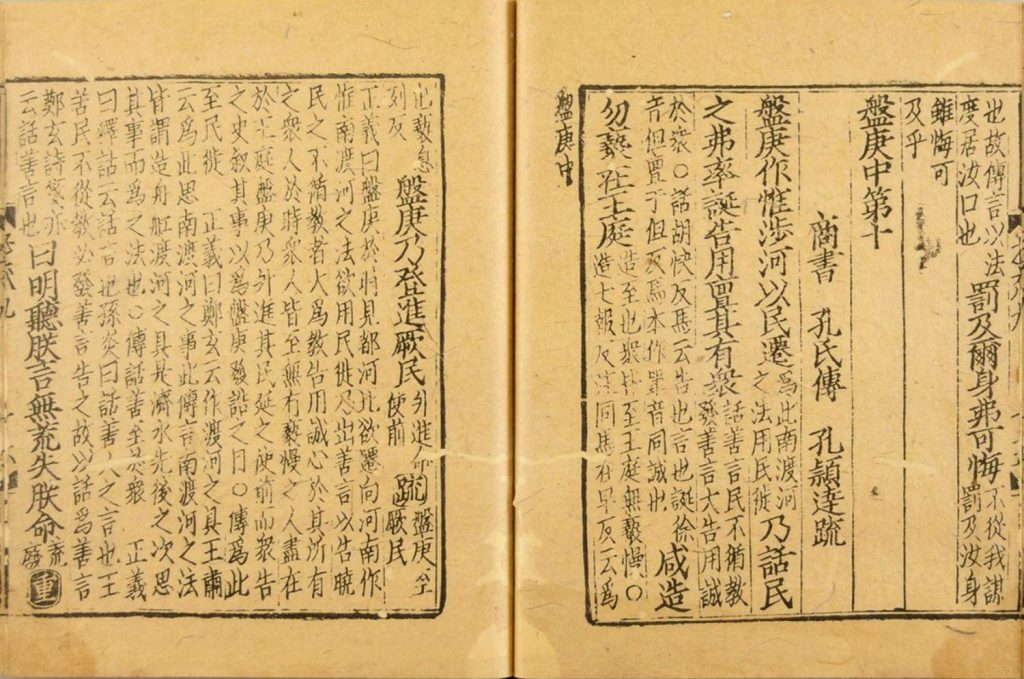 也故傳言以法度居汝口也罰及爾身弗可悔不從我謀罰及汝身
雖悔可及乎
盤庚中第十
商書 孔氏傳 孔穎達疏
盤庚作惟涉河以民遷爲此南渡河之法用民徙乃話民
之弗率誕告用亶其有衆話善言民不循教發善言大告用誠
於衆○話胡快反馬云告也言也誕徐音但亶丁但反馬本作單音同誠也咸造
勿褻在王庭造至也衆皆至王庭無褻慢○造七報反注同馬在早反云爲
盤庚中
也褻息列反盤庚乃登進厥民升進命使前疏盤庚至厥民
正義曰盤庚於時見都河北欲遷向河南作
惟南渡河之法欲用民徙乃出善言以告曉
民之不循教者大爲教告用誠心於其所有
之衆人於時衆人皆至無有褻慢之人盡在
於王庭盤庚乃升進其民延之使前而衆告
之史叙其事以爲盤庚發誥之目○傳爲此
至民徙 正義曰鄭玄云作渡河之具王肅
云爲此思南渡河之事此傳言南渡河之法
皆謂造舟舡渡河之具是濟水先後之次思
其事而爲之法也○傳話善至於衆 正義
曰釋詁云話言也孫炎曰話善人之言也王
苦民不從教必發善言告之故以話爲善言
鄭玄詩箋亦云話善言也曰明聽朕言無荒失朕命荒廢重